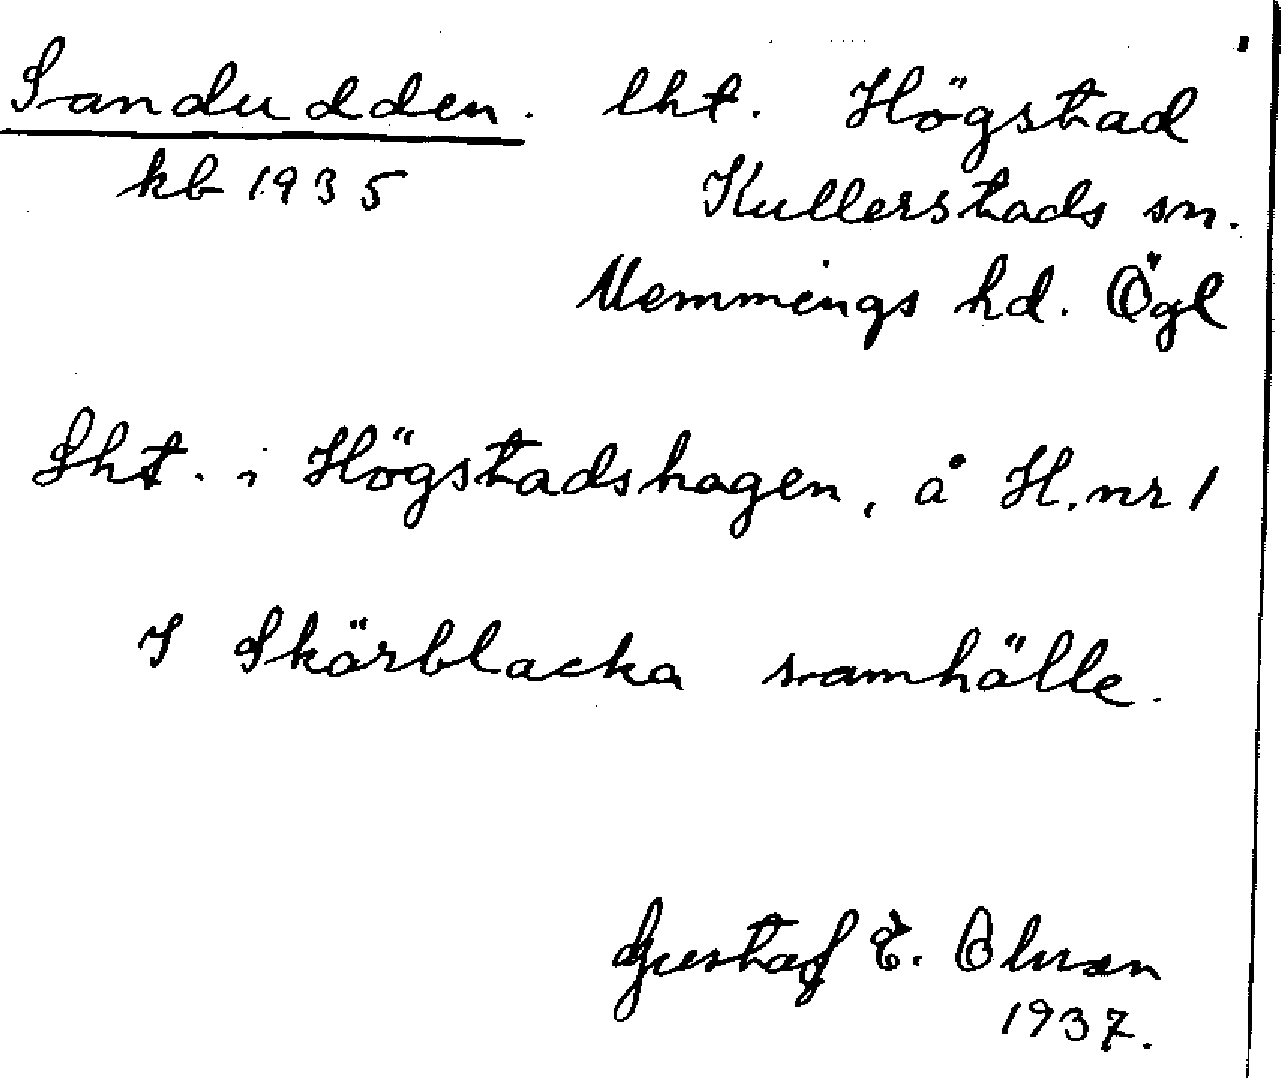 Sandudden. lht. Högstad
kb 1935 Kullerstads sn.
Memmings hd. Ögl
Lht. i Högstadshagen, å H. nr 1
I Skärblacka samhälle.
Gustaf E. Olsson
1937.